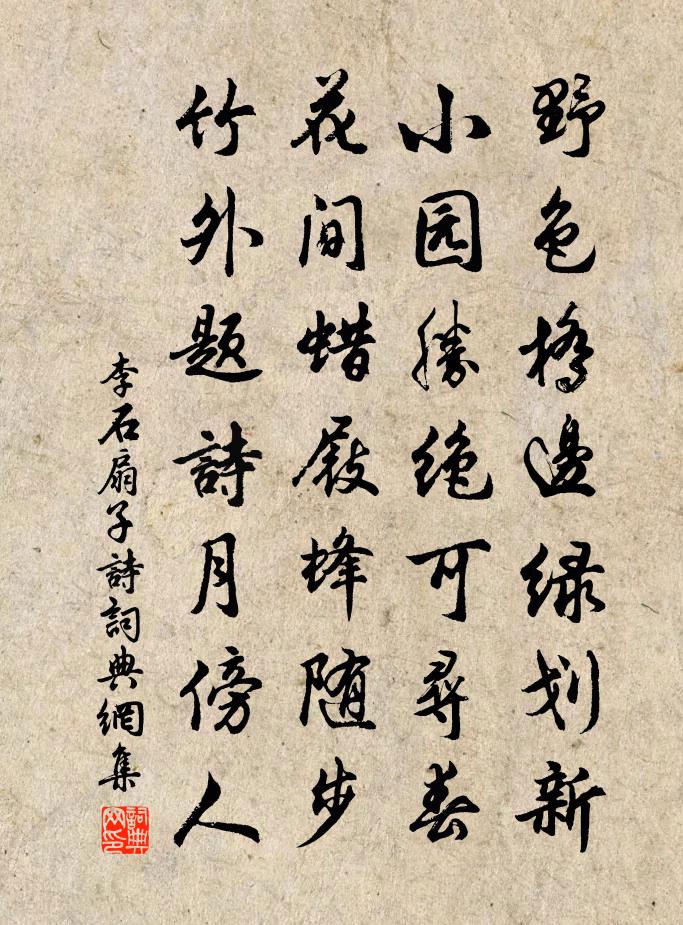 野色橋邊绿划新
小园勝绝可尋春
花间蜡屐蜂随步
竹外题詩月傍人
李石扇子詩詞典網集
詞典網印